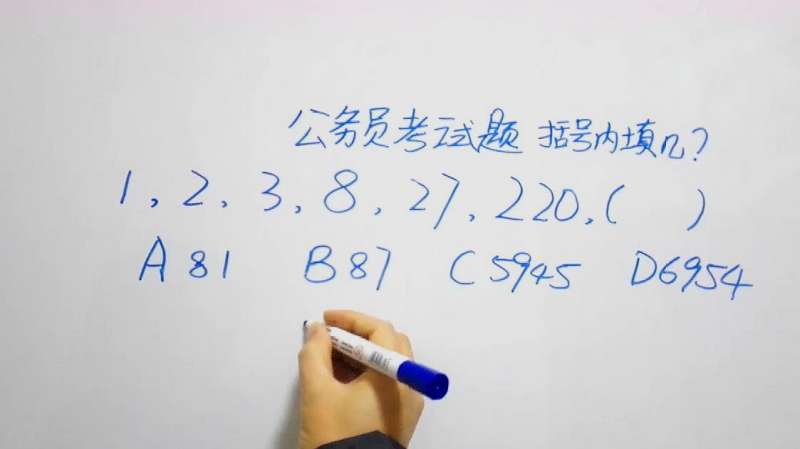 公务员考试题 括号内填几?
1, 2, 3, 8, 27, 220, ( )
A 81 B 87 C 5945 D 6954